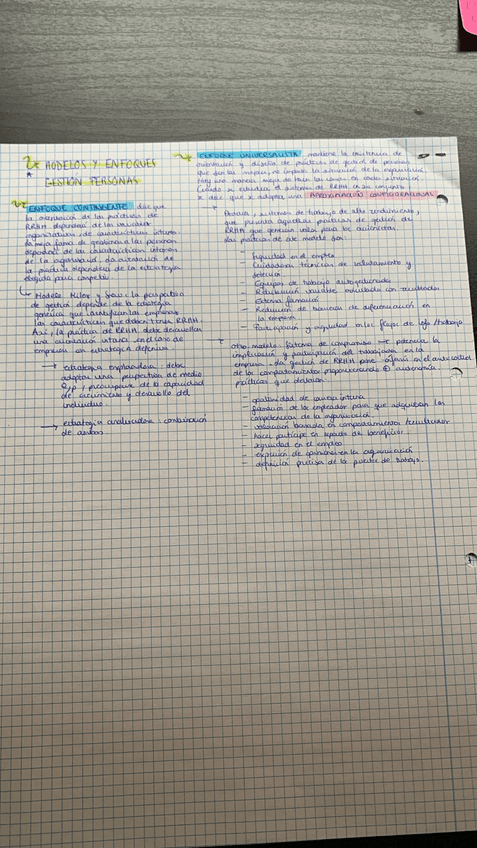 2. MODELOS Y ENFOQUES
* GESTIÓN PERSONAS
ENFOQUE CONTINGENTE dice que
la orientación de las prácticas de
RRHH dependerá de las variables
organizativas y de características internas.
La mejor forma de gestionar a las personas
dependerá de las características internas
de la organización. La orientación de
la práctica dependerá de la estrategia
elegida para competir
Modelo Miles y Snow: la perspectiva
de gestión depende de la estrategia
genérica que identifican las empresas
las características que deben tener RRHH.
Así, la práctica de RRHH debe desarrollar
una orientación interna en el caso de
empresas con estrategia defensiva.
→ estrategia exploradora: debe
adoptar una perspectiva de medio
y preocuparse de la capacidad
de crecimiento y desarrollo del
individuo.
→ estrategia analizadora: combinación
de ambas.
ENFOQUE UNIVERSALISTA mantiene la existencia de
orientación y diseño de prácticas de gestión de personas
que son las mejores, no importa la situación de la organización
Hay una manera mejor de hacer las cosas en
Cuando se estudia el sistema de RRHH en su conjunto
se dice que se adopta una APROXIMACIÓN CONFIGURACIONAL
sistemas de trabajo de alto rendimiento,
que presenta aquellas prácticas de gestión de
RRHH que generan valor para los accionistas
Las prácticas de este modelo son:
- Seguridad en el empleo
- Cuidadosas técnicas de reclutamiento y
selección
- Equipos de trabajo autogestionados
- Retribución variable vinculada con resultados
- Extensa formación
- Reducción de barreras de diferenciación en
la empresa
- Participación
Otro modelo: sistema de compromiso → potencia la
implicación y participación del trabajador en la
empresa. La gestión de RRHH pone énfasis en el autocontrol
de los comportamientos proporcionando autonomía.
prácticas que destacan:
- de carrera interna
- formación de los empleados para que adquieran las
competencias de la organización.
- valoración basada en comportamientos/resultados
- hacer partícipe en reparto de beneficios
- seguridad en el empleo
- expresión de opiniones en la organización
- definición precisa de los puestos de trabajo.